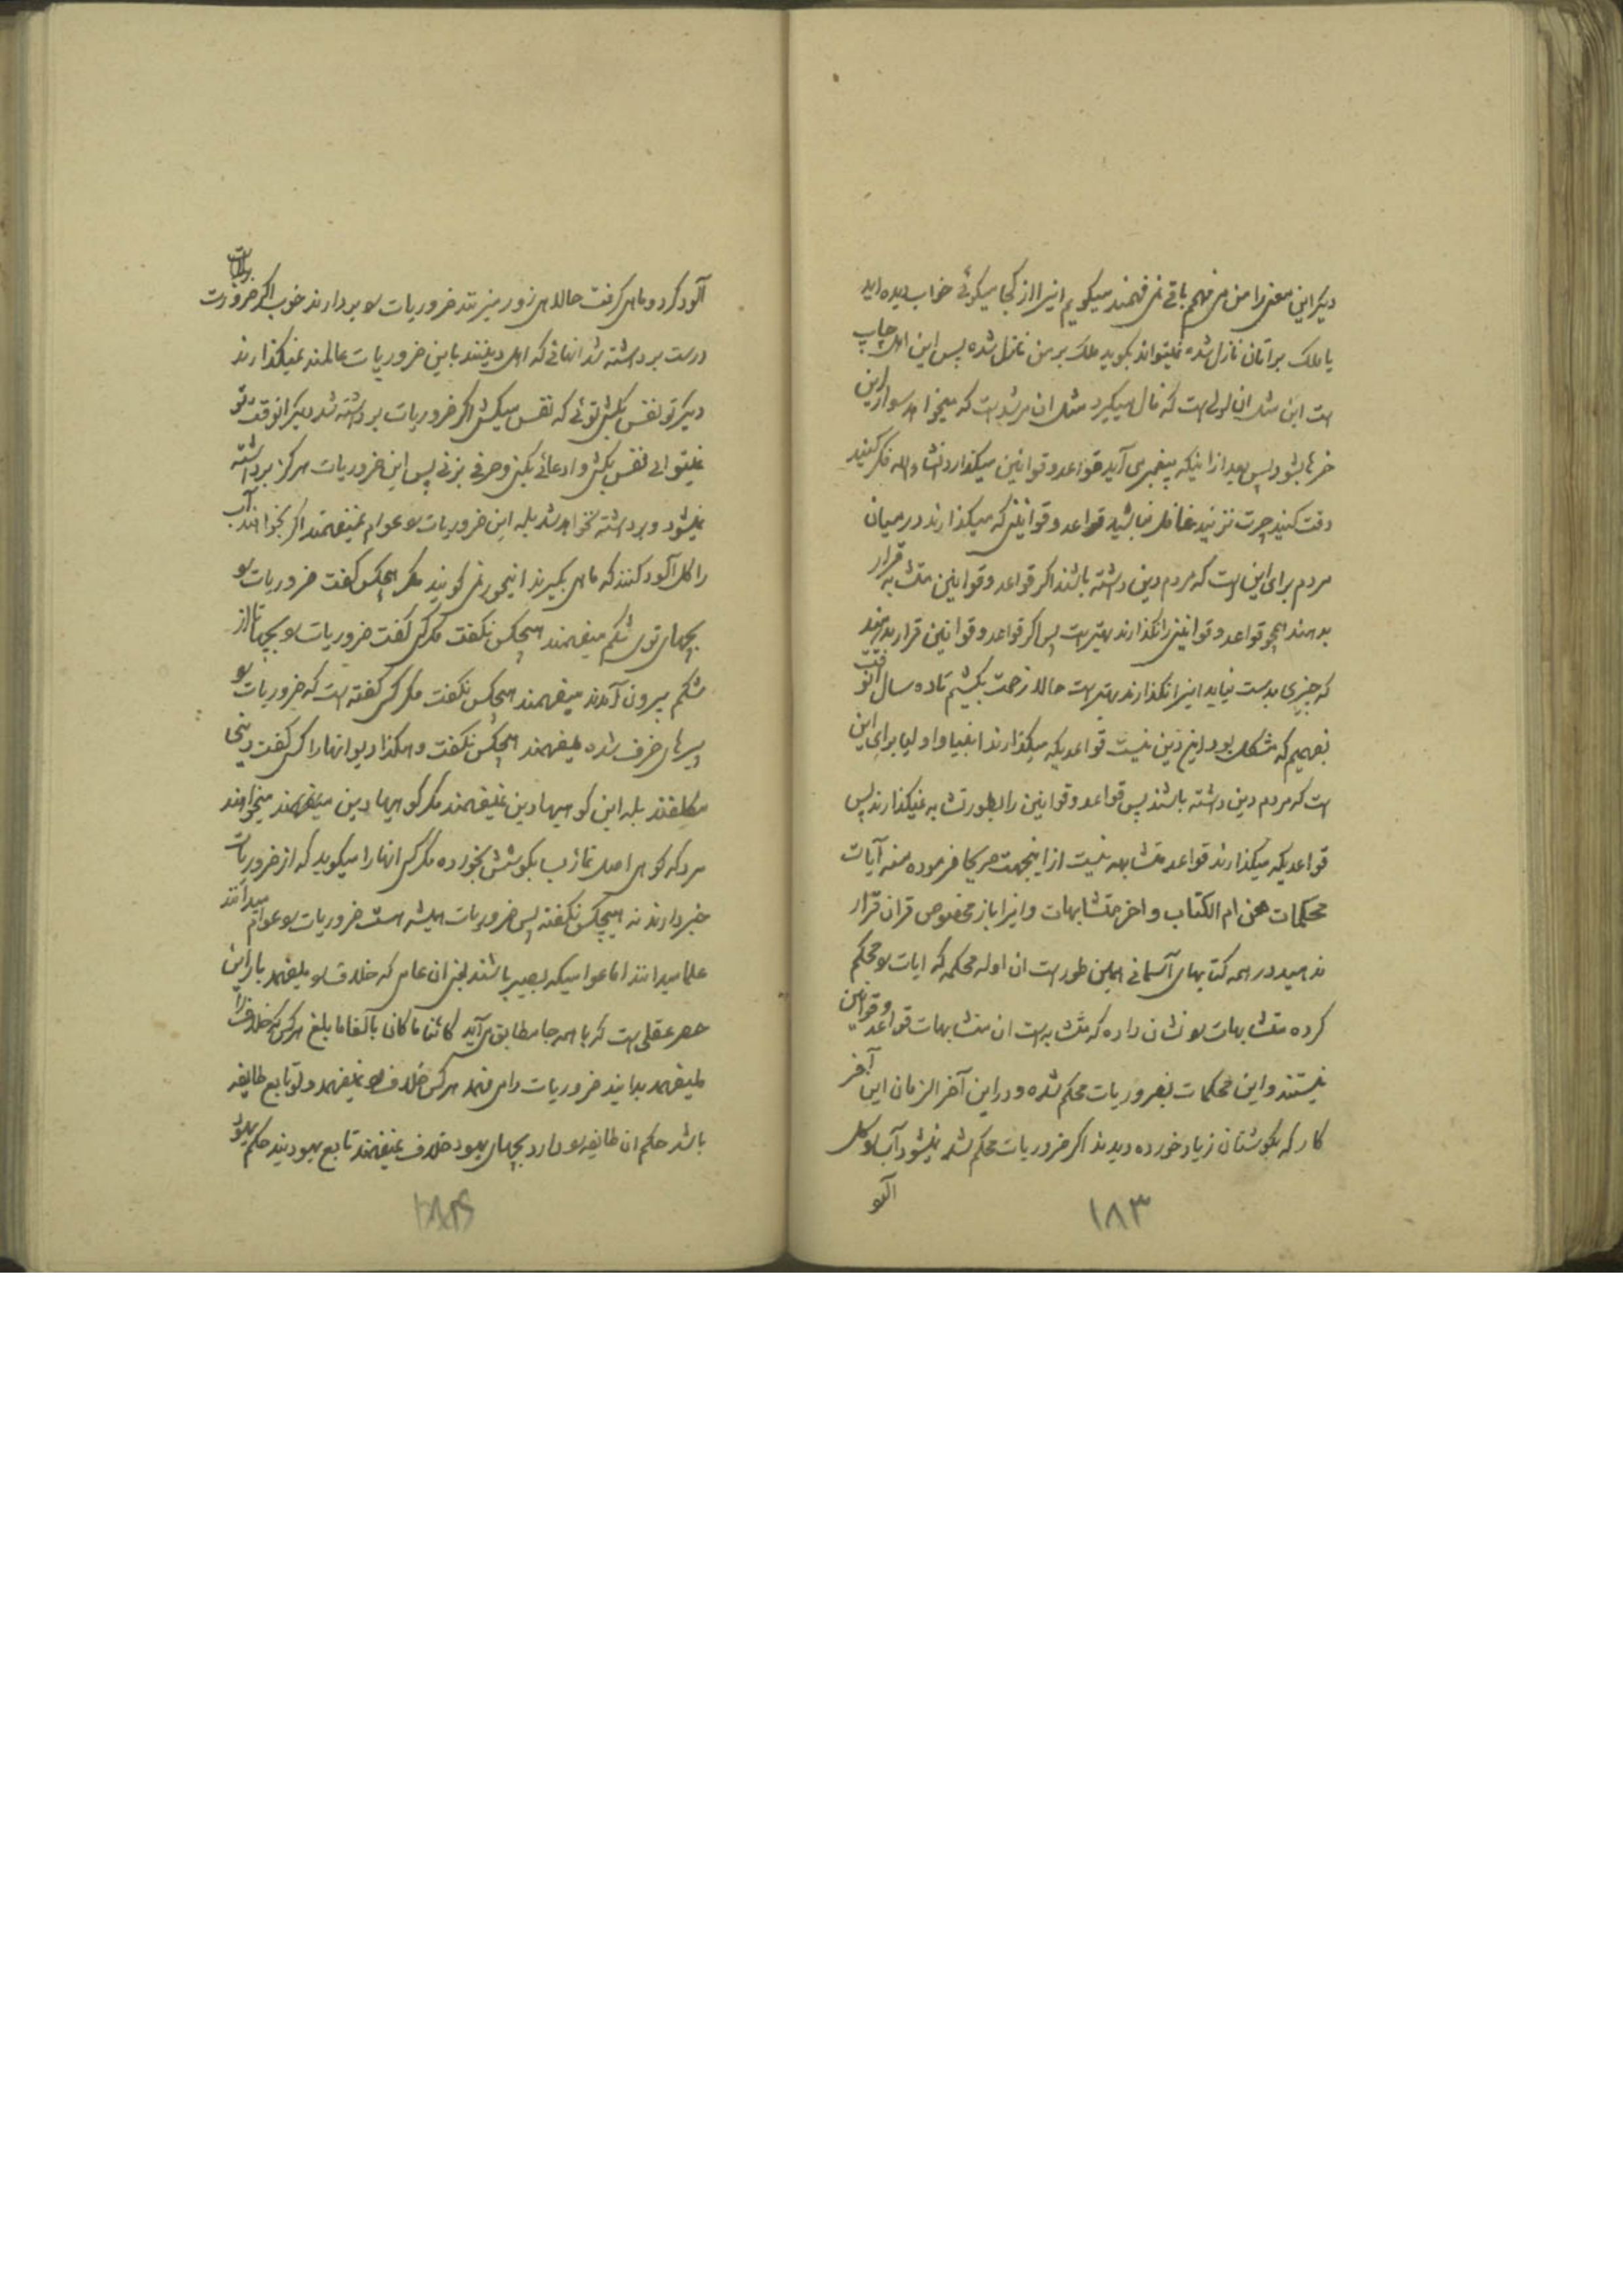 دیگر این معنی را من می فهمم باقی نمی فهمند میگویم اینرا از کجا میگوئی خواب دیده اید
یا ملک براتان نازل شده نمیتواند بگوید ملک بر من نازل شده پس این اهل چاپ
است این مثل ان لولی است که فال میگیرد مثل ان مرشد است که میخواهد سوار این
خرها بشود پس بعد از اینکه پیغمبری می آید قواعد و قوانین میگذارد انشاء الله فکر کنید
دقت کنید چرت نزنید غافل نباشید قواعد و قوانینی که میگذارند در میان
مردم برای این است که مردم دین داشته باشند اگر قواعد و قوانین متشابه قرار
بدهند همچو قواعد و قوانینی را نگذارند بهتر است پس اگر قواعد و قوانین قرار بدهند
که چیزی بدست نیاید اینرا نگذارند بهتر است حالا زحمت بکشیم تا ده سال انوقت
بفهمیم که مشکل بود این دین نیست قواعدیکه میگذارند انبیا و اولیا برای این
است که مردم دین داشته باشند پس قواعد و قوانین را بطور تشابه نمیگذارند پس
قواعدیکه میگذارند قواعد متشابهه نیست از اینجهت صریحا فرموده منه آیات
محکمات هن ام الکتاب و اخر متشابهات و اینرا باز مخصوص قران قرار
ندهید در همه کتابهای آسمانی همین طور است ان ادله محکمه که ایات را محکم
کرده متشابهات را نشان داده که متشابه است ان متشابهات قواعد و قوانین
نیستند و این محکمات بضروریات محکم شده و در این آخر الزمان این آخر
کار که بگوشتان زیاد خورده دیدند اگر ضروریات محکم شد نمیشود آب را گل
آلود
۱۸۳
آلود کرد و ماهی گرفت حالا هی زور میزنند ضروریات را بردارند خوب اگر ضروریات
درست برداشته شد انهائی که اهل دینند باین ضروریات عالمند نمیگذارند
دیگر تو نفس بکشی توئی که نفس میکشی اگر ضروریات برداشته شد دیگر انوقت تو
نمیتوانی نفس بکشی و ادعائی بکنی و حرفی بزنی پس این ضروریات هرگز برداشته
نمیشود و برداشته نخواهد شد بله این ضروریات را عوام نمیفهمند اگر بخواهند آب
را گل آلود کنند که ماهی بگیرند اینجور می گویند مگر هیچکس گفت ضروریات را
بچهای توی شکم میفهمند هیچکس نگفت مگر کسی گفت ضروریات را بچها تا از
شکم بیرون آمدند میفهمند هیچکس نگفت مگر کسی گفته است که ضروریات را
پیرهای خرف شده میفهمند هیچکس نگفت و هکذا دیوانها را کسی گفت دینی
مکلفند بله این کوهیها دین نمیفهمند مگر کوهیها دین میفهمند میخواهند
مردکه کوهی اصل نماز بگوشش نخورده مگر کسی انها را میگوید که از ضروریات
خبر دارند نه هیچکس نگفته پس ضروریات همیشه هست ضروریات را عوام میدانند
علما میدانند اما عوامیکه بصیر باشند بجز ان عامی که خلافش را میفهمد باز این
حصر عقلی است که با همه جا مطابق می آید کائنا ما کان بالغا ما بلغ هر کس که خلافش را
میفهمد بدانید ضروریات را می فهمد هر کس خلاف را نمیفهمد و لو تابع طایفه
باشد حکم ان طایفه را دارد بچهای یهود خلاف نمیفهمند تابع یهودیند حکم یهود